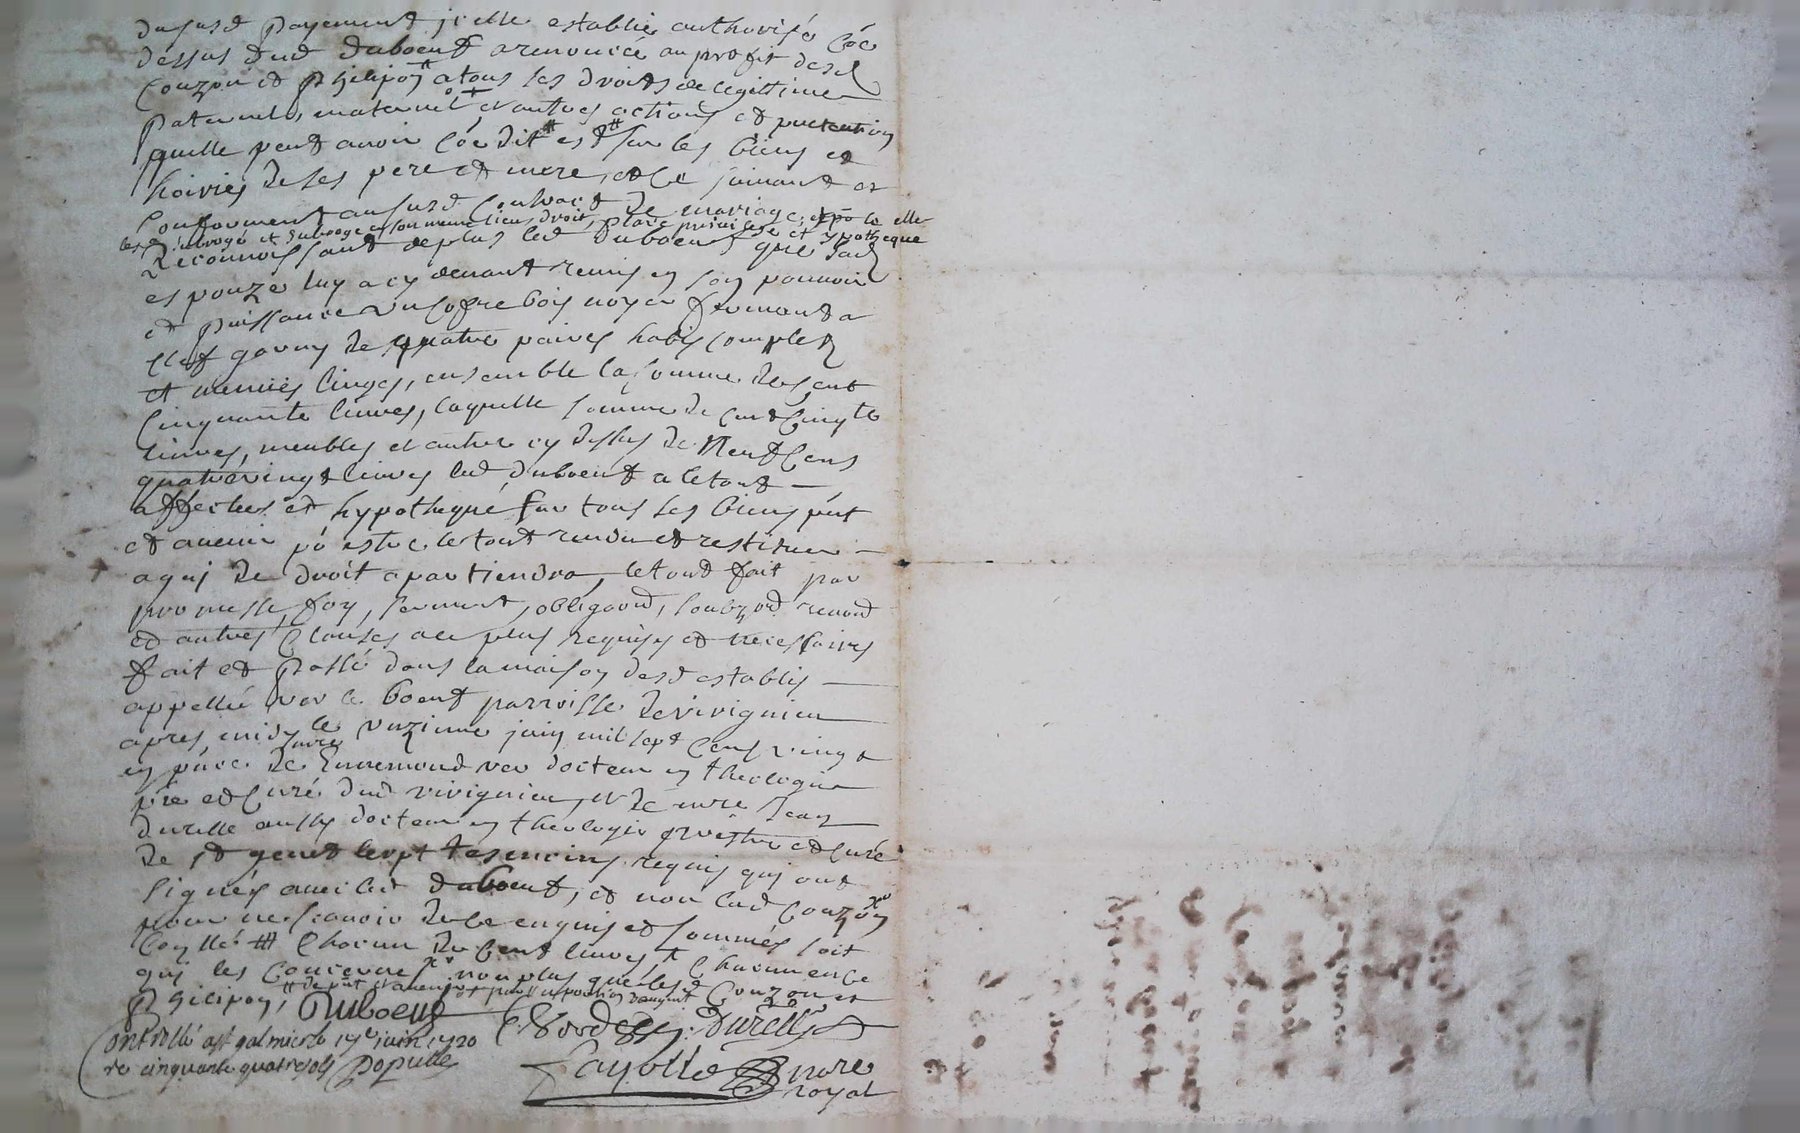 dususd payement jcelle establie authorisée coe
dessus dud duboeuf a renoncé au profit desd
Couzon et philipon a tous ses droits de legitime
paternel, maternel et autres actions et pretention
quelle peut avoir coe dit est sur les biens et
hoiries de ses pere et mere, et ce suivant et
conformement aususd contract de mariage, et po ce elle
les a subrogé et subroge en son mesme lieu, droit, place privilege et ypotheque
Reconnoissant de plus led duboeuf que sad
espouze luy a cy devant remis en son pouvoir
et puissance un cofre bois noyer fermant a
clef garny de quatre paires habis complets
et menues linges, ensemble la somme de cent
cinquante livres, laquelle somme de cent cinqte
livres, meubles et autre cy dessus de Neuf cens
quatrevingt livres led duboeuf a le tout
affectes et hypothequé sur tous ses biens pnt
et avenir po estre le tout rendu et restitue
a quj de droit apartiendra, le tout fait par
promesse, foy, serment, obligaond, soubzond renond
et autres clauses a ce plus requises et necessaires
fait et passé dans la maison desd establis
appellée ver le boeuf parroisse de virignieu
apres midy le unzieme juin mil sept cens vingt
en pnce de mre Ennemond ver docteur en theologie
pre et curé dud virignieu, et de mre Jean
durelle aussy docteur en theologie prestre et curé
de st genest lerpt tesmoins requis quj ont
signés avec led duboeuf, et non led couzon
pour ne scavoir de ce enquis et sommés soit
chacun de cent livres chacun en ce
quj les concerne non plus que lesd Couzon et
philipon, de pnt et avenir
Duboeuf Durelle
Controllé a st galmier le 17e juin 1720
re cinquante quatre sols Populle
Fayolle nore
royal